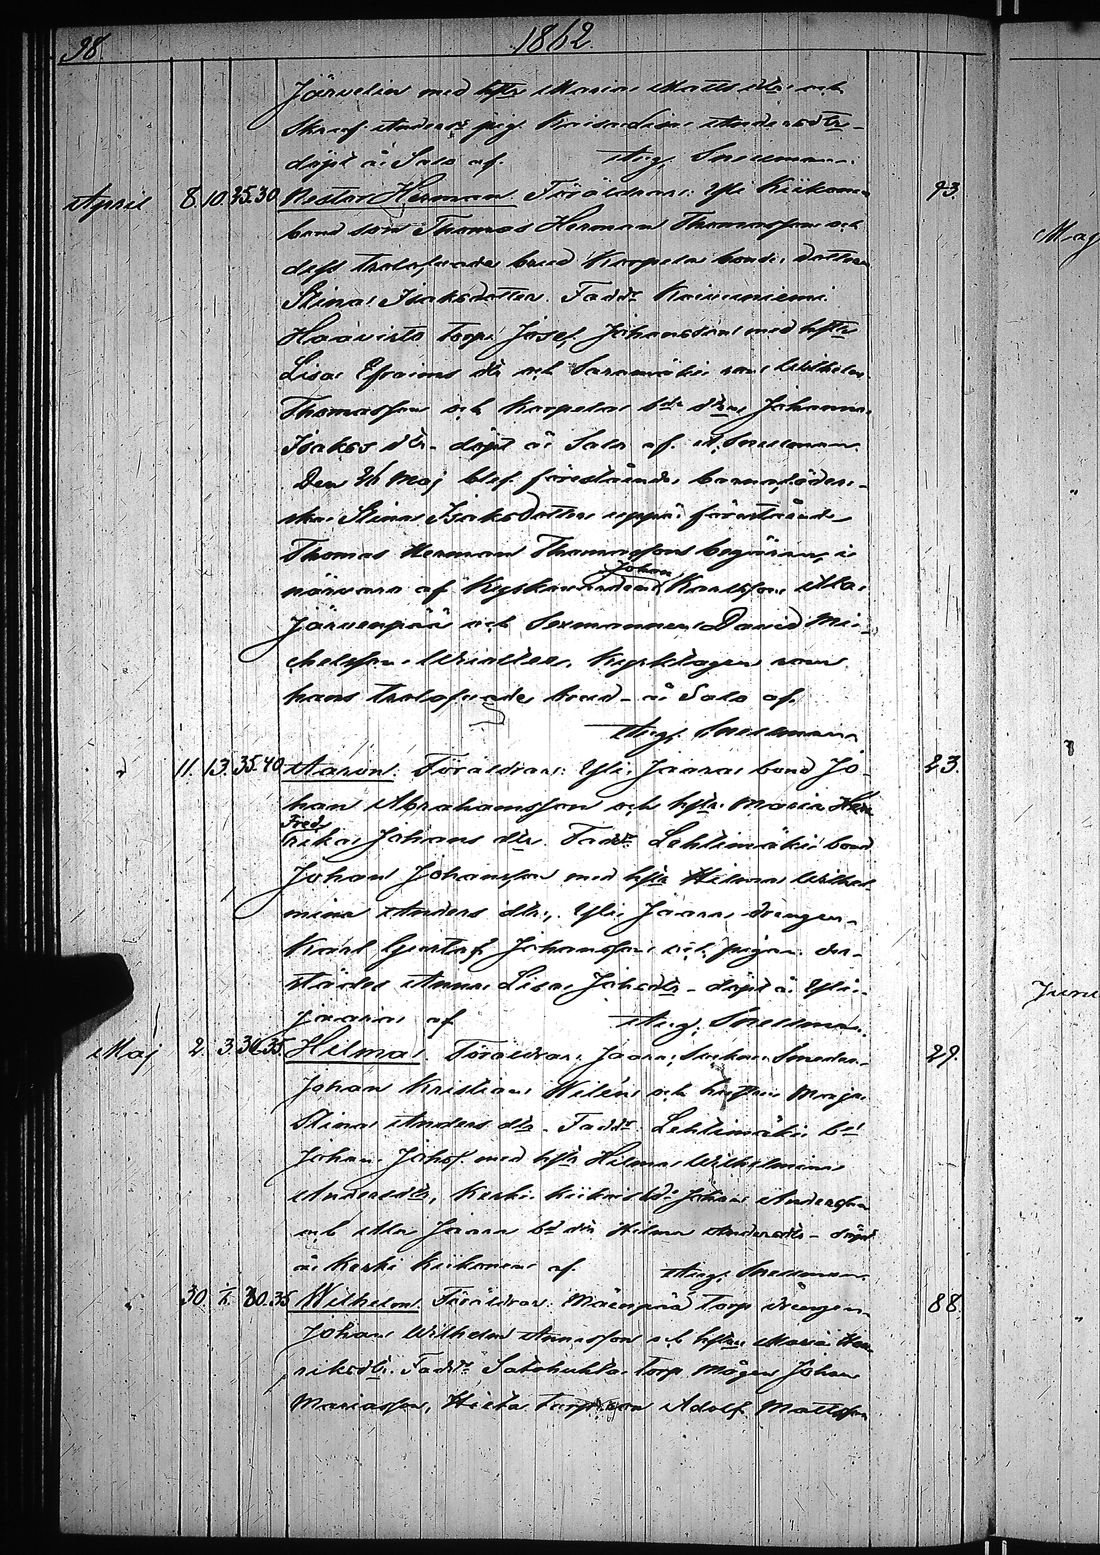 98. 1862.
Järvelin med hstr Maria Matts dtr och
Anders pig. Kaisa Lisa Andersdtr
döpt å Salo af. Aug. Snellman.
April 8. 10. 35. 30. Nestor Herman. Föräldrar: Yli Kiikoin 93.
bond son Thomas Herman Thomasson och
dess trolofvade brud Karpela bonde dottren
Stina Isaksdotter. Faddr Kaivuniemi
Haavisto torp. Josef Johansson med hstr
Lisa Efraims dtr och son Wilhelm
Thomasson och Karpela bde dtrn Johanna
Isaks dtr. döpt å Salo af A. Snellman.
Den Maj blef förestående barnaföder-
ska Stina Isaksdotter uppå förestående
Thomas Herman Thomassons begäran, i
Johan
närvaro af Kyrkovärden Karlsson Ala
Järvenpää och Sexmannen David Mi-
chelsson kyrktagen som
hans trolofvade brud å Salo af.
Aug. Snellman.
" 11. 13. 35. 40. Aaron. Föräldrar: Yli Jaara bond Jo- 23.
han Abrahamsson och hstr Maria
Fred
rika Johans dtr. Faddr Lehtimäki bond
Johan Johansson med hstr Hilma Wilhel
mina Anders dtr, Yli Jaara drengen
Karl Gustaf Johansson och pigan der-
städes Anna Lisa Johsdtr döpt å Yli-
jaara af Aug. Snellman.
Maj 2. 3. 30. 35. Hilma. Föräldrar: Jaara Smeden 29.
Johan Kristian Wilén och hustru Maja
Stina Anders dtr. Faddr Lehtimäki bd
Johan Johsf. med hstr Hilma Wilhelmina
Andersdtr, Keski Kiikoin bd Johan Andersson
och Ala Jaara bd dtr Hilma Andersdtr döpt
å Keski Kiikoinen af Aug. Snellman.
" 30. 1/6. 30. 35. Wilhelm. Föräldrar: Mäenpää torp drengen 88.
Johan Wilhelm Annasson och hstru Maria Hen
riksdtr. Faddr Satohuhta torp. Mågen Johan
Mariasson, Hieta torp son Adolf Mattsson
Maj
Juni